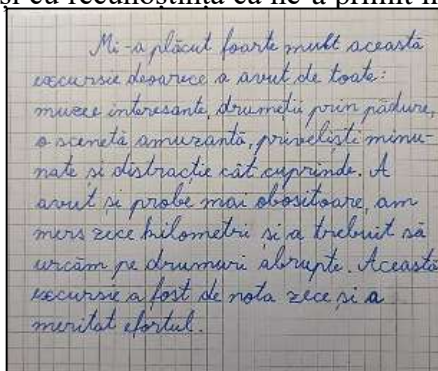 și cu recunoștință că ne-a primit
Mi-a plăcut foarte mult această
excursie deoarece a avut de toate:
muzee interesante, drumeții prin pădure,
o scenetă amuzantă, priveliști minu-
nate și distracție cât cuprinde. A
avut și probe mai obositoare, am
mers zece kilometri și a trebuit să
urcăm pe drumuri abrupte. Această
excursie a fost de nota zece și a
meritat efortul.